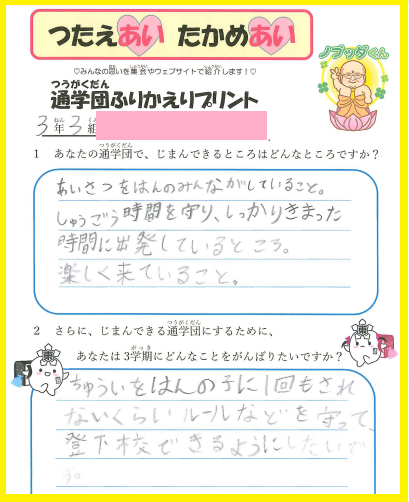 つたえあい たかめあい
♡みんなの思いを集会やウェブサイトで紹介します!♡
ノブッダくん
つうがくだん
通学団ふりかえりプリント
3年3組
1 あなたの通学団で、じまんできるところはどんなところですか?
あいさつをはんのみんながしていること。
しゅうごう時間を守り、しっかりきまった
時間に出発しているところ。
楽しく来ていること。
2 さらに、じまんできる通学団にするために、
あなたは3学期にどんなことをがんばりたいですか?
ちゅういをはんの子に1回もされ
ないくらいルールなどを守って、
登下校できるようにしたいで
す。